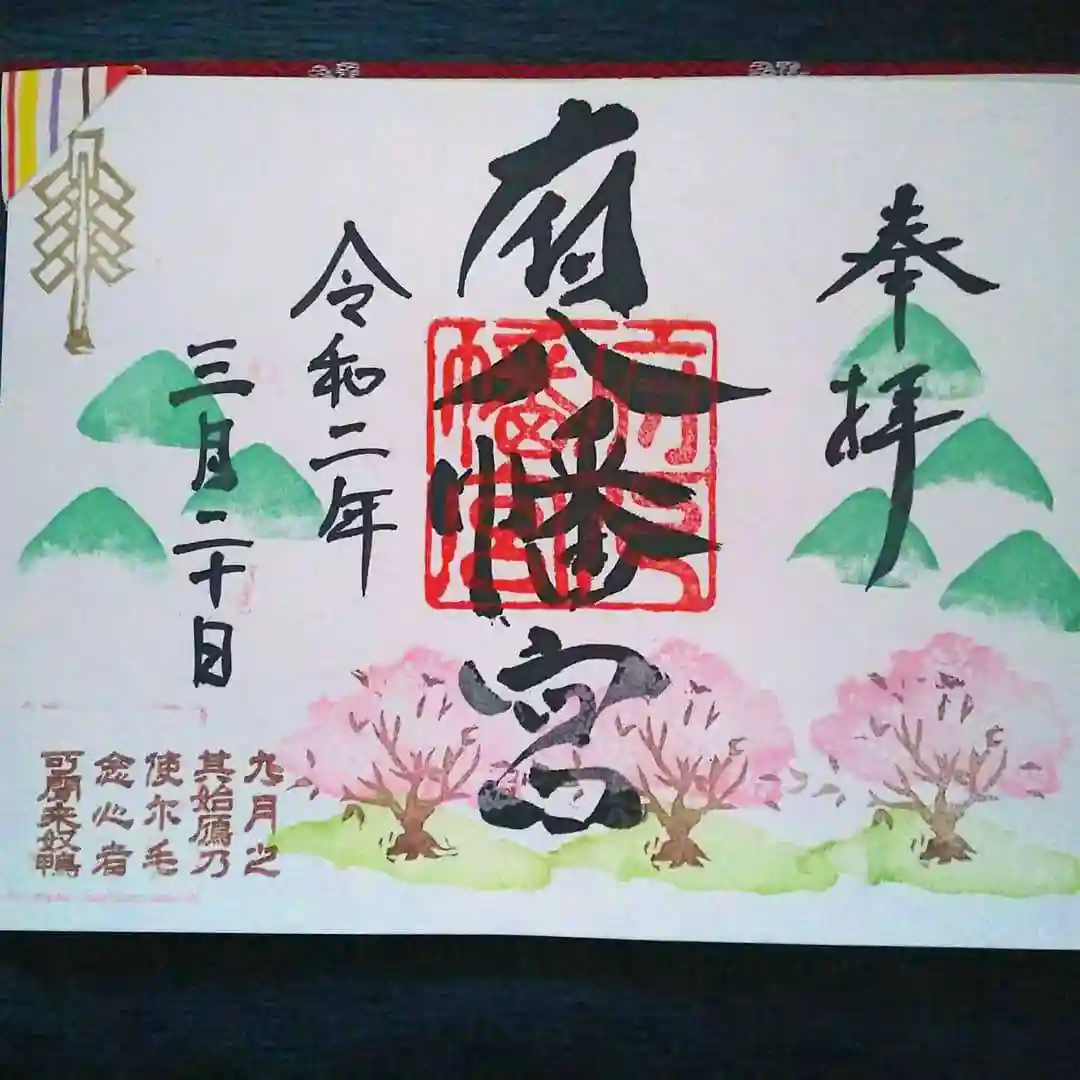 奉拝
府八幡宮
府八幡宮
令和二年
三月二十日
九月之
其始鴈乃
使尔毛
念心者
可聞来奴鴨